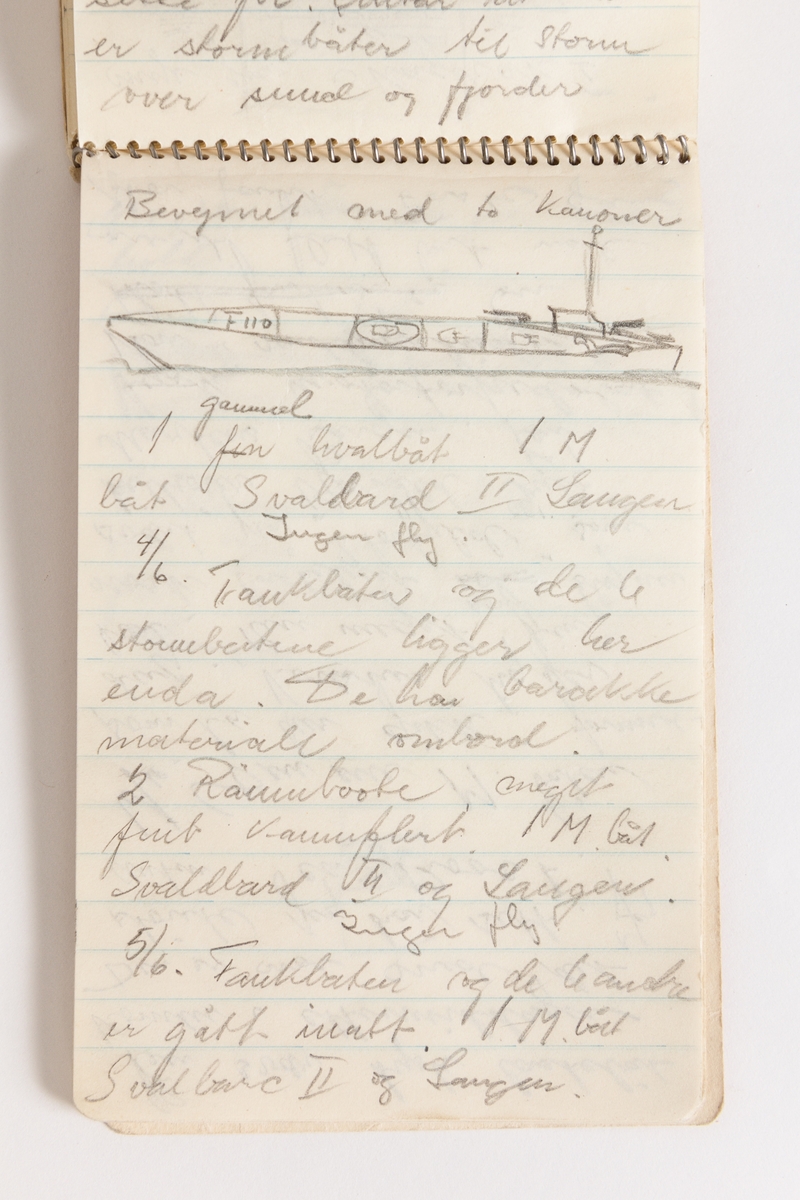 er stormbåter til Storm
over sund og fjorder
Bevepnet med to Kanoner
F110
gammel
1 fin hvalbåt 1 M
båt Svaldbard II Langen
Ingen fly.
4/6. Tankbåten og de 6
stormbåtene ligger her
enda. De har barakke
materiale ombord.
2 Räumboote, meget
fint kamuflert. 1 M. båt
Svaldbard II og Langen.
Ingen fly
5/6. Tankbåten og de 6 andre
er gått inatt. 1 M. båt
Svalbard II og Langen.